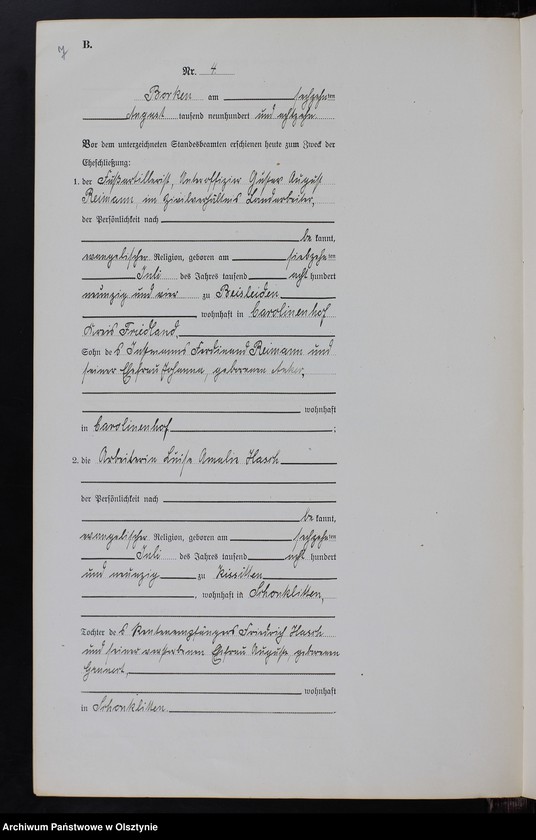 7
B.
Nr. 4
Borken am sechzehnten
August tausend neunhundert und achtzehn
Vor dem unterzeichneten Standesbeamten erschienen heute zum Zweck der
Eheschließung:
1. der Fußartillerist, Unteroffizier Gustav August
Reimann, im Zivilverhältnis Landarbeiter,
der Persönlichkeit nach
be kannt,
evangelischer Religion, geboren am siebzehnten
Juli des Jahres tausend acht hundert
neunzig und vier zu Beisleiden
, wohnhaft in Carolinenhof
Kreis Friedland,
Sohn des Instmanns Ferdinand Reimann und
seiner Ehefrau Johanna, geborenen Anker,
wohnhaft
in Carolinenhof ;
2. die Arbeiterin Luise Amalie Hasch
der Persönlichkeit nach
be kannt,
evangelischer Religion, geboren am sechzehnten
Juli des Jahres tausend acht hundert
und neunzig zu Kissitten
, wohnhaft in Schönklitten,
Tochter des Rentenempfängers Friedrich Hasch
und seiner verstorbenen Ehefrau Auguste, geborenen
wohnhaft
in Schönklitten
Archiwum Państwowe w Olsztynie